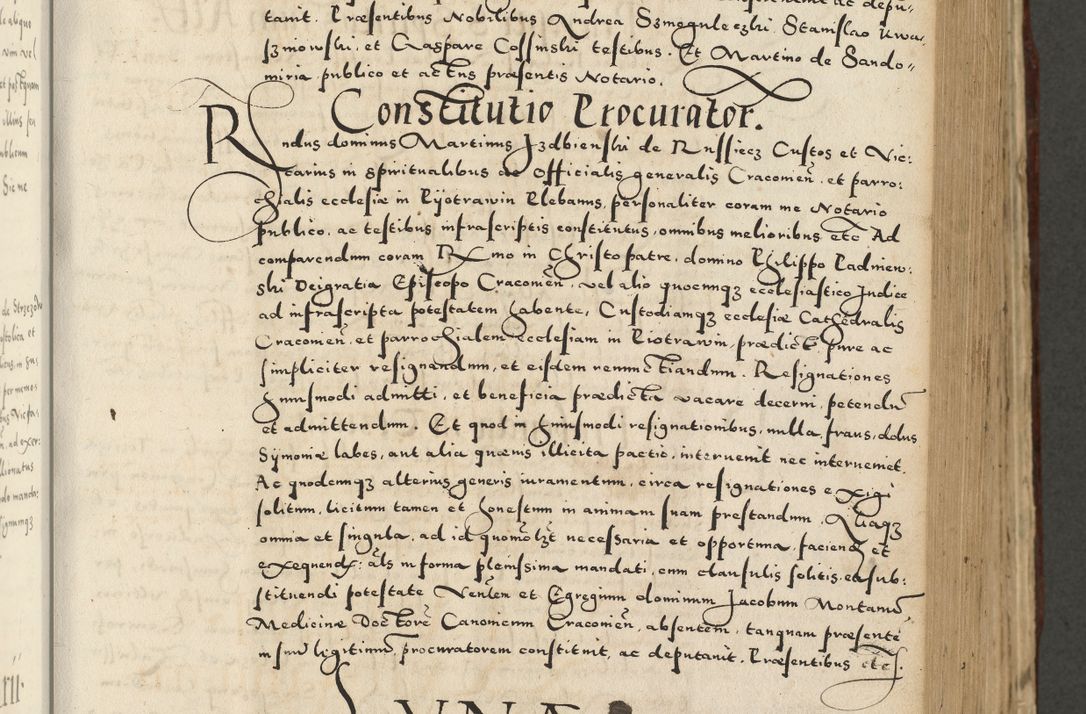 tauit. Præsentibus Nobilibus Andrea Szmeguleczki. Stanislao Kwa,
szniowski, et Caspare Cossinski testibus. Et Martino de Sando„
miria publico et actus præsentis Notario.
Constitutio Procurator.
Rndus dominus Martinus Izdbienski de Russiecz Custos et Vic:
carius in spiritualibus ac Officialis generalis Cracouien̄. et parro:
chialis ecclesiæ in Pyotrawin Plebanus, personaliter coram me Notario
publico, ac testibus infrascriptis constitutus, omnibus melioribus etc Ad
comparendum coram Rmo in Christo patre, domino Philippo Padniew:
ski Dei gratia Episcopo Cracouien̄. vel alio quocunqz ecclesiastico Iudice
ad infrascripta potestatem habente, Custodiamqz ecclesiæ Cathedralis
Cracouien̄, et parrochialem ecclesiam in Piotrawin, prædict. pure ac
simpliciter resignandum, et eisdem renunctiandum. Resignationes
huiusmodi admitti, et beneficia prædicta vacare decerni, petendū
et admittendum. Et quod in huiusmodi resignationibus, nulla fraus, dolus
Symoniæ labes, aut alia quæuis illicita pactio, interuenit nec interueniet.
Ac quodcunqz alterius generis iuramentum, circa resignationes exigi
solitum, licitum tamen et honestum in animam suam prestandum. Aliaqz
omnia et singula, ad id quomōlzt necessaria et opportuna, faciend et
exequend: āls in forma plenissima mandati, cum clausulis solitis, et sub:
stituendi potestate Venlem et Egregium dominum Jacobum Montanū
Medicinæ Doctorē Canonicum Cracouien̄, absentem, tanquam præsentē
in suū legitimū, procuratorem constituit, ac deputauit. Præsentibus etc.